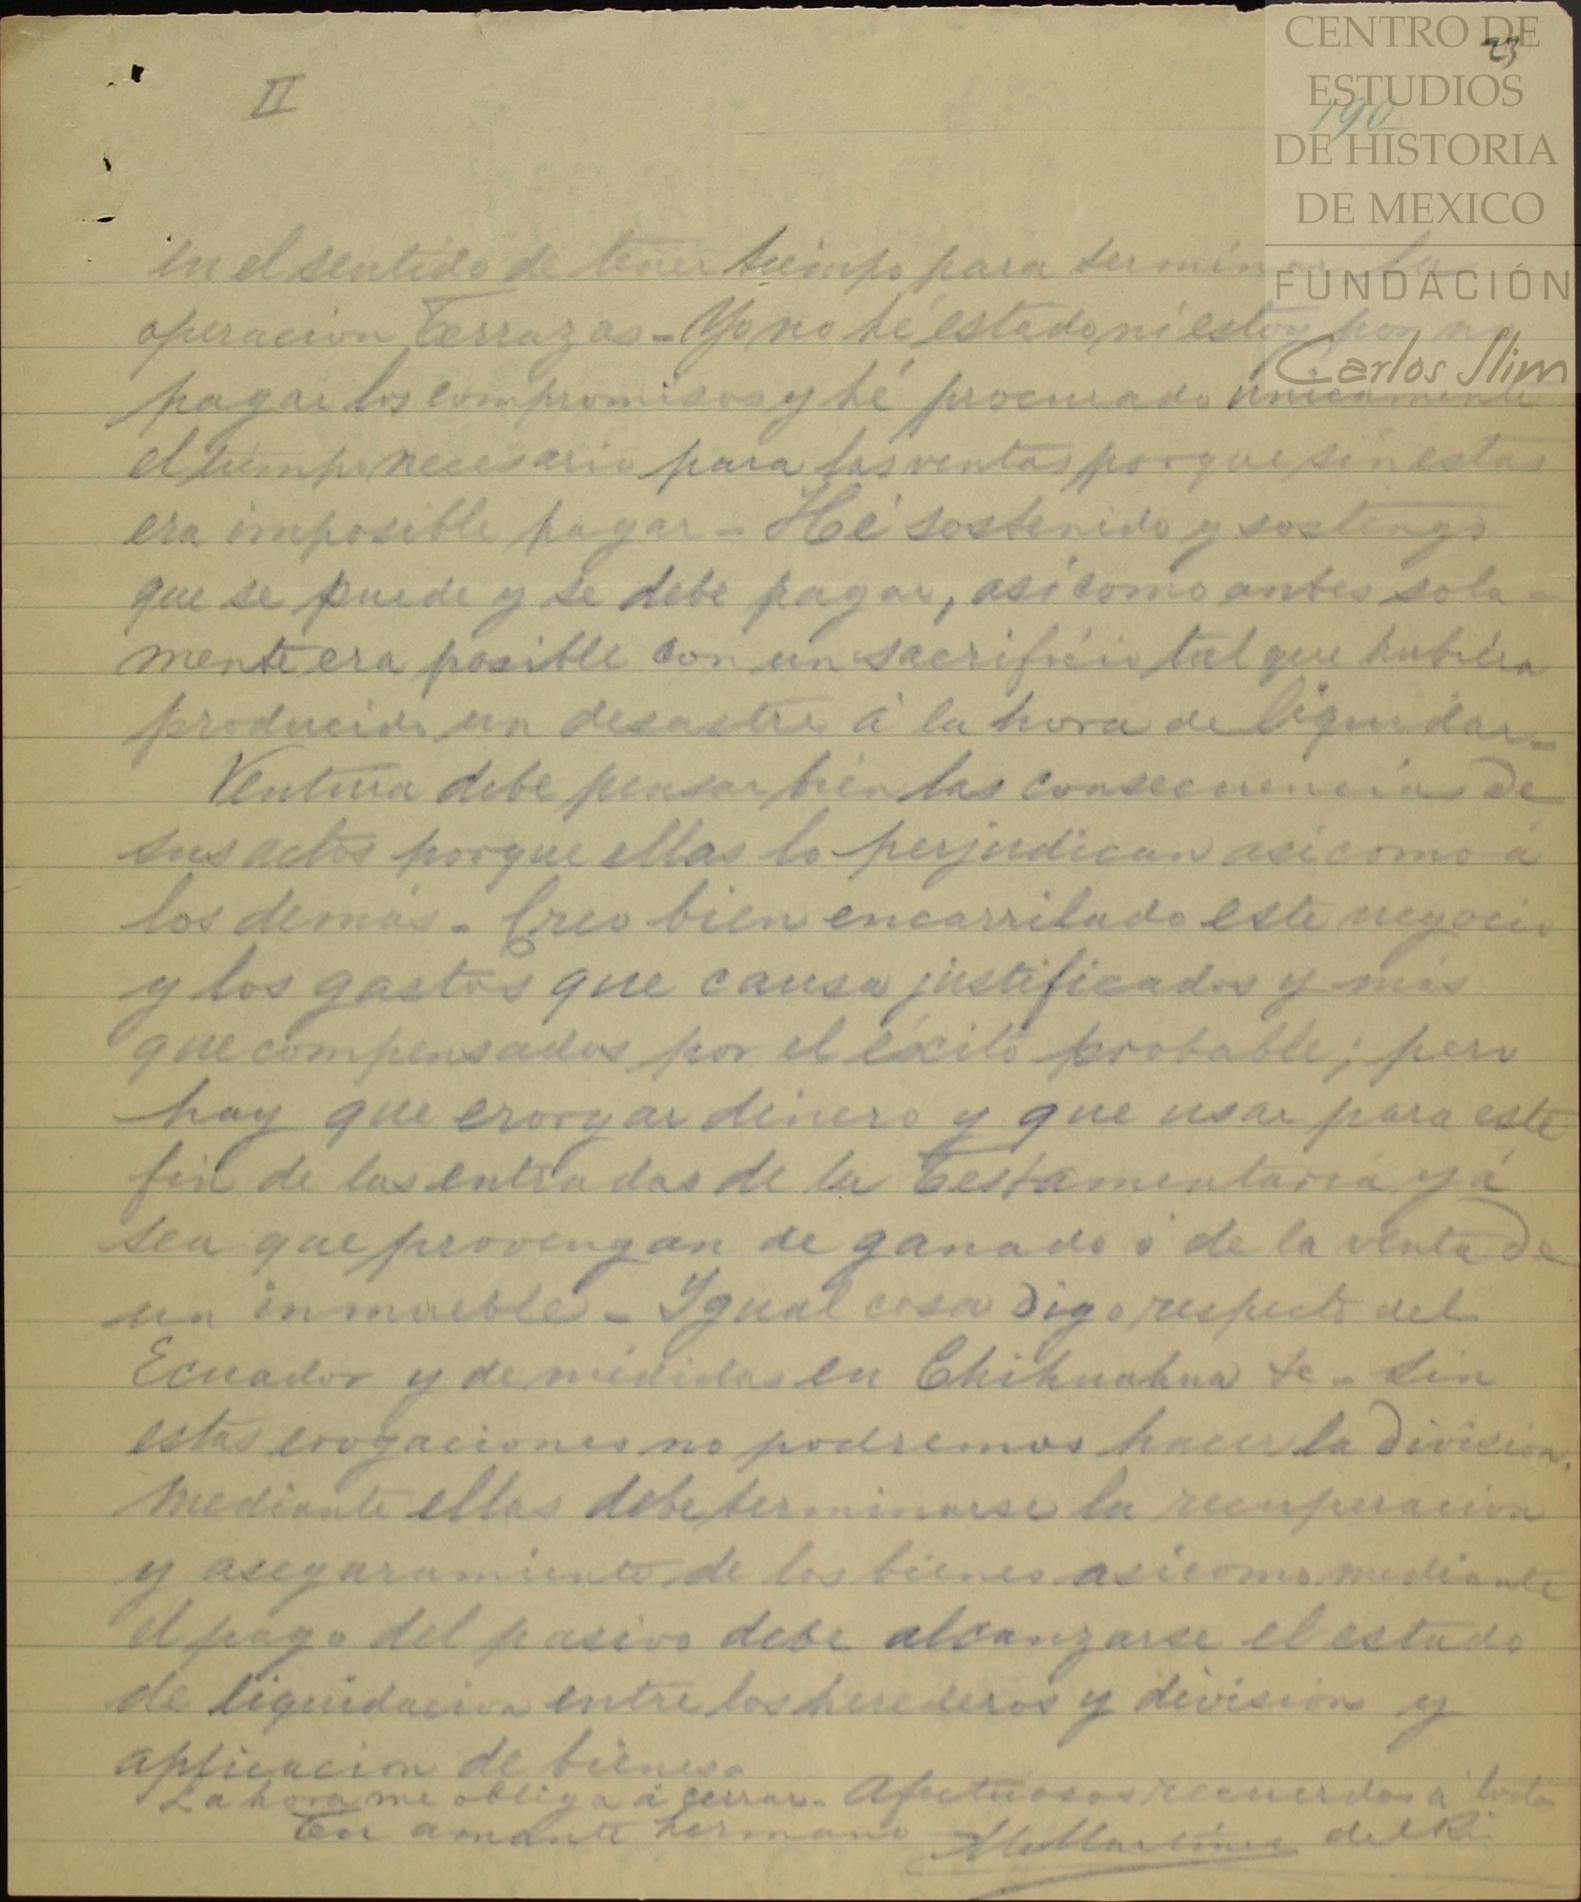 II
23
190
CENTRO DE
ESTUDIOS
DE HISTORIA
DE MEXICO
FUNDACIÓN
Carlos Slim
en el sentido de tener tiempo para terminar la
operacion Terrazas - Yo no hé estado ni estoy por no
pagar los compromisos y hé procurado únicamente
el tiempo necesario para las ventas porque sin estas
era imposible pagar - Hé sostenido y sostengo
que se puede y se debe pagar, asi como antes sola -
mente era posible con un sacrificio tal que hubiera
producido un desastre á la hora de liquidar -
Ventura debe pensar bien las consecuencias de
sus actos porque ellas lo perjudican asi como á
los demás - Creo bien encarrilado este negocio
y los gastos que causa justificados y más
que compensados por el éxito probable; pero
hay que erogar dinero y que usar para este
fin de las entradas de la Testamentaria yá
sea que provengan de ganado ó de la venta de
un inmueble - Igual cosa digo respecto del
Ecuador y de medidas en Chihuahua &c - Sin
estas erogaciones no podremos hacer la division.
Mediante ellas debe terminarse la recuperacion
y aseguramiento de los bienes asi como mediante
el pago del pasivo debe alcanzarse el estado
de liquidacion entre los herederos y division y
aplicacion de bienes.
La hora me obliga á cerrar - Afectuosos recuerdos á todos
Tu amante hermano Martínez del Rio